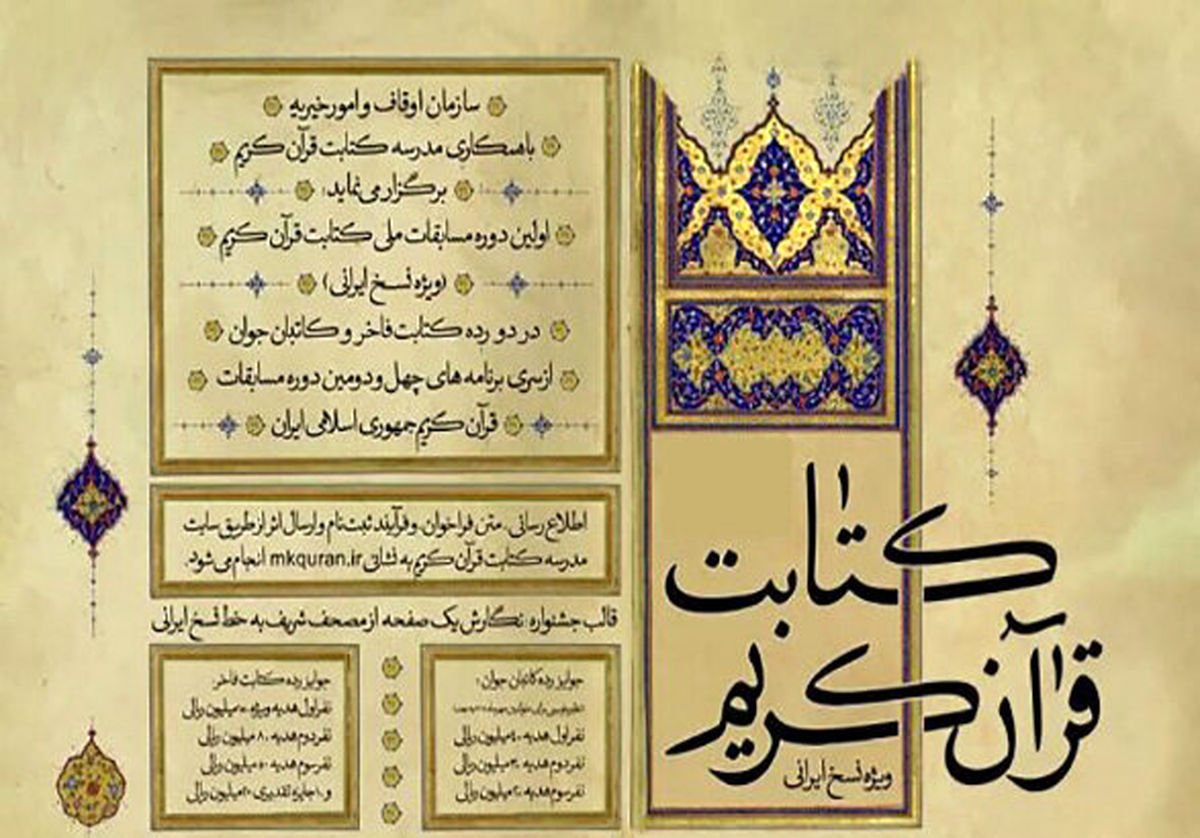 کتابت
قرآن کریم
ویژه نسخ ایرانی
سازمان اوقاف و امور خیریه
با همکاری مدرسه کتابت قرآن کریم
برگزار می‌نماید:
اولین دوره مسابقات ملی کتابت قرآن کریم
(ویژه نسخ ایرانی)
در دو رده کتابت فاخر و کاتبان جوان
از سری برنامه های چهل و دومین دوره مسابقات
قرآن کریم جمهوری اسلامی ایران
اطلاع رسانی، متن فراخوان، و فرآیند ثبت نام و ارسال اثر از طریق سایت
مدرسه کتابت قرآن کریم به نشانی mkquran.ir انجام می‌شود.
قالب جشنواره: نگارش یک صفحه از مصحف شریف به خط نسخ ایرانی
جوایز رده کاتبان جوان:
نفر اول هدیه ۴۰ میلیون ریالی
نفر دوم هدیه ۳۰ میلیون ریالی
نفر سوم هدیه ۲۰ میلیون ریالی
جوایز رده کتابت فاخر:
نفر اول هدیه ویژه میلیون ریالی
نفر دوم هدیه ۸۰ میلیون ریالی
نفر سوم هدیه ۵۰ میلیون ریالی
و ۱۰ جایزه تقدیری ۲۰ میلیون ریالی